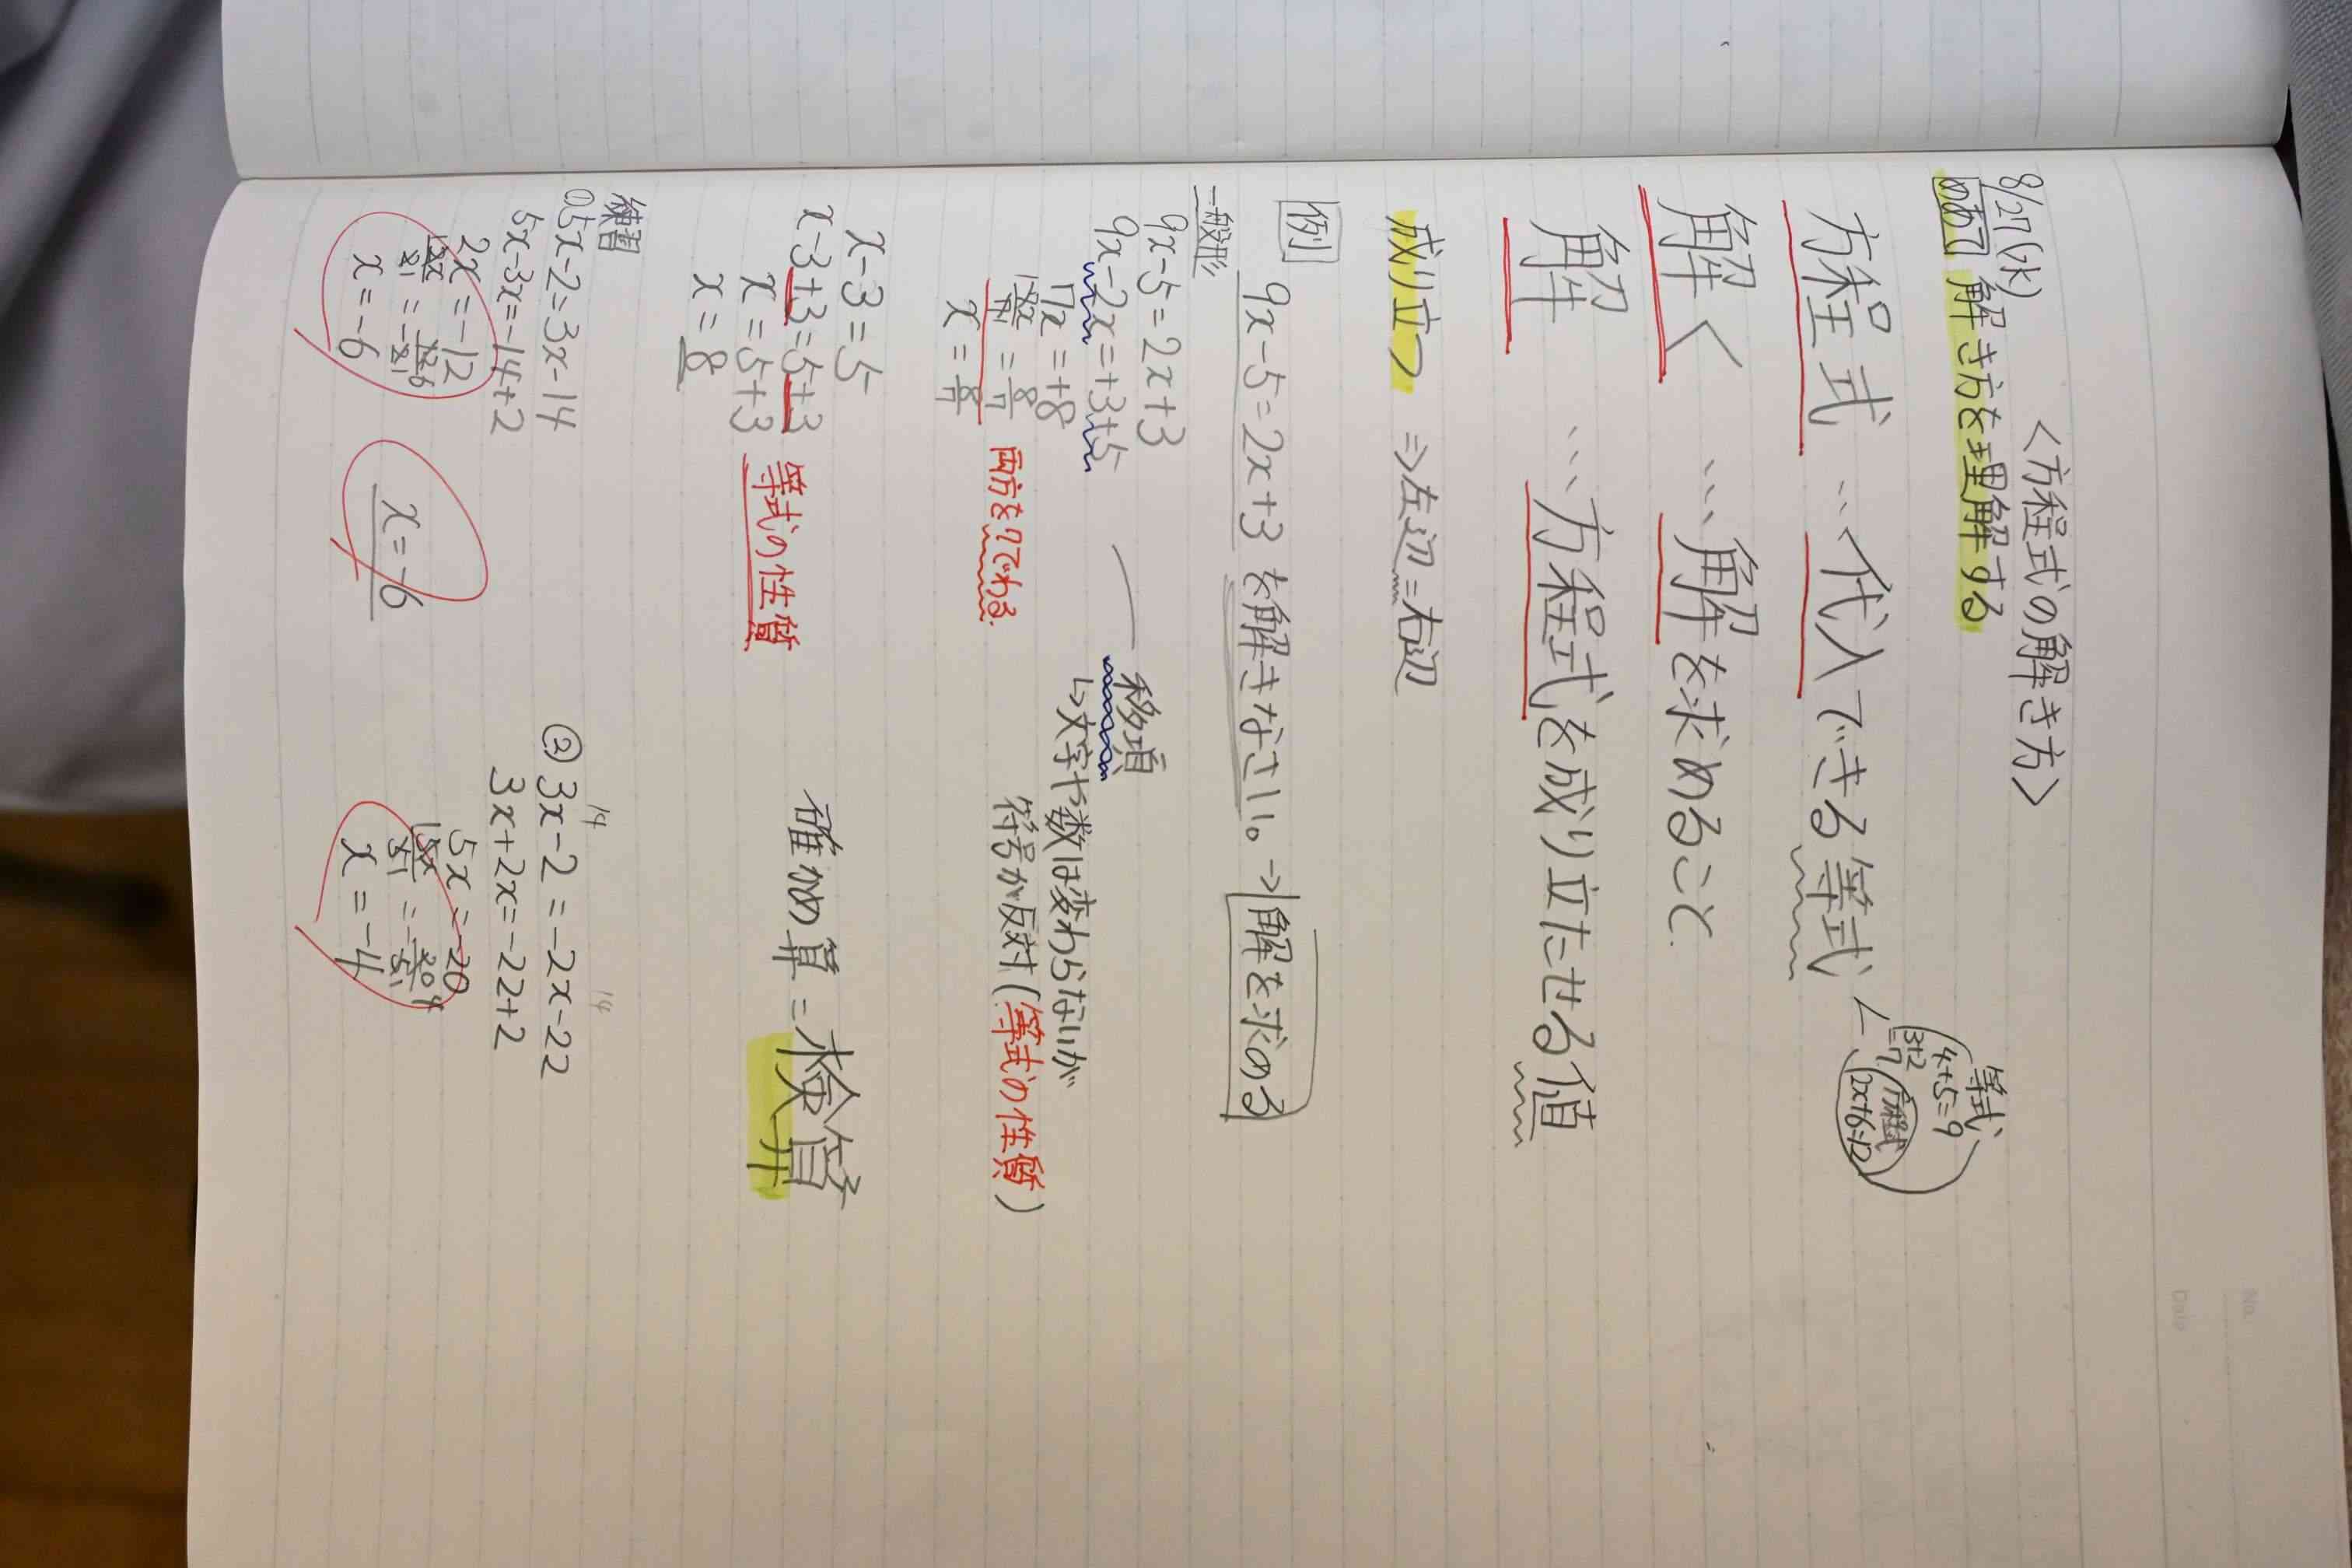 8/27(水) <方程式の解き方>
めあて 解き方を理解する
等式
4+5=9
3+2
=7
方程式
2x+6=12
方程式 … 代入できる等式
解く … 解を求めること.
解 … 方程式を成り立たせる値
成り立つ ⇒ 左辺=右辺
例 9x-5=2x+3 を解きなさい。→ 解を求める
一般形
9x-5=2x+3
9x-2x=+3+5 移項
7x=+8 ↳文字や数は変わらないが
符号が反対(等式の性質)
7x/7 = 8/7 両方を7でわる.
x = 8/7
x-3=5
x-3+3=5+3 等式の性質 確かめ算=検算
x=5+3
x=8
練習
①5x-2=3x-14
5x-3x=-14+2
2x=-12
2x/2 = -12/2
x=-6
x=-6
②3x-2=-2x-22
3x+2x=-22+2
5x=-20
5x/5 = -20/5
x=-4
No.
Date